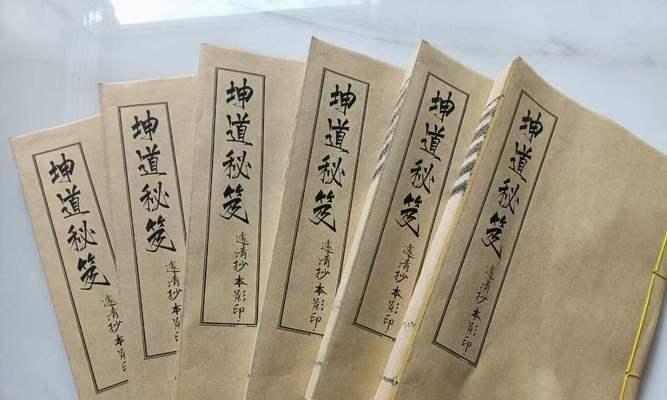 坤道秘笈
清抄本影印
坤道秘笈
清抄本影印
坤道秘笈
清抄本影印
坤道秘笈
清抄本影印
坤道秘笈
清抄本影印
坤道秘笈
清抄本影印